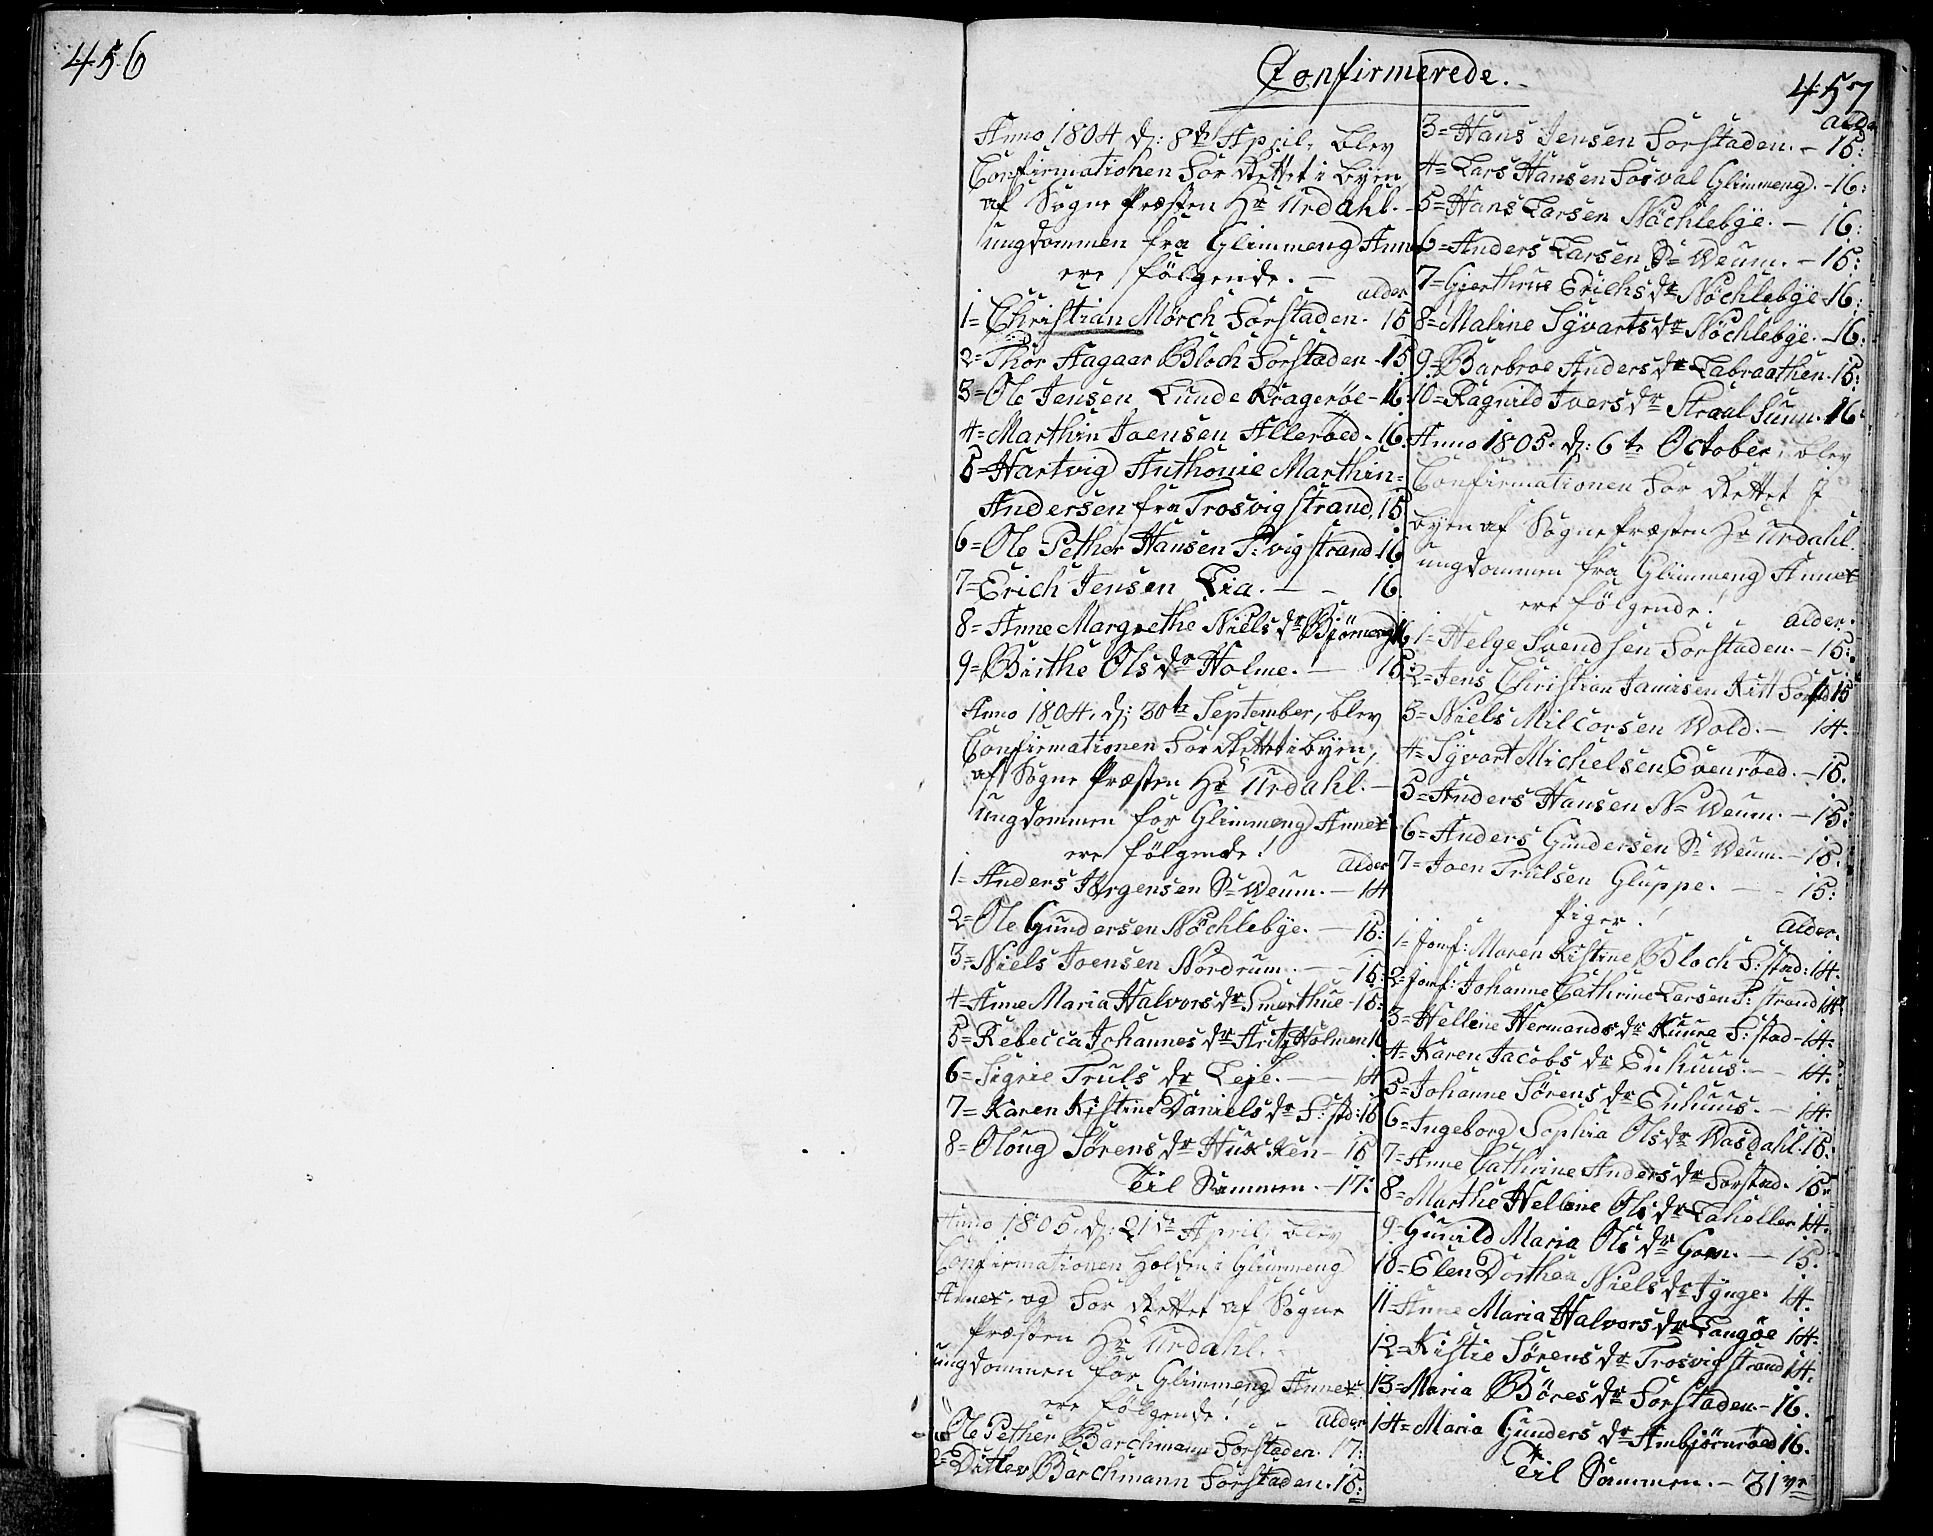 456
Confirmerede.
457
Anno 1804 d: 8de April, blev
Confirmationen Forrettet i Byen
af Sogne Præsten Hr Urdahl.
ungdommen fra Glimmeng Annex
ere følgende. —
alder
1= Christian Mørch Forstaden. 15
2= Thor Aagaar Bloch Forstaden - 15
3= Ole Jensen Lunde Kragerøe - 16.
4= Marthin Joensen Allerøed - 16.
5= Hartvig Anthonie Marthin=
Andersen fra Trosvigstrand, 15
6= Ole Pether Hansen T:vigstrand 16
7= Erich Jensen Lia. — - 16.
8= Anne Margrethe Niels dr Bjørneng 16
9= Birthe Ols dr Holme. — 15:
Anno 1804, d: 30te September, blev
Confirmationen Forrettet i byen,
af Sogne Præsten Hr Urdahl. —
ungdommen for Glimmeng Annex
ere følgende!
alder
1= Anders Jørgensen S= Weum. — 14
2= Ole Gundersen Nøchlebye. — 15:
3= Niels Joensen Nordrum. — - 15:
4= Anne Maria Halvors dr Smerthue - 15:
5= Rebecca Johannes dr Holmen 16
6= Sigrie Truls dr Leje. — — 14
7= Karen Kistine Daniels dr F:std: 16
8= Oloug Sørens dr - 15
Til Sammen. - 17:
Anno 1805, d: 21de April, blev
Confirmationen holden i Glimmeng
Annex, og Forrettet af Sogne
Præsten Hr Urdahl. -
ungdommen for Glimmeng Annex
ere følgende!
alder
Ole Pether Barchmann Forstaden. 17:
2= Ditlev Barchmann Forstaden. 15:
alder
3= Hans Jensen Forstaden. - 15:
4= Lars Hansen Glimmeng. - 16:
5= Hans Larsen Nöchlebye. — 16:
6= Anders Larsen S= Weum. - 15:
7= Gjerthrue Erichs dr Nöchlebye 16:
8= Maline Syvarts dr Nöchlebye. - 16:
9= Barbroe Anders dr Labraathen. 15:
10= Ragnild Ivers dr 16:
Anno 1805. d: 6te October, blev
Confirmationen Forrettet I
byen af Sogne Præsten Hr Urdahl.
ungdommen fra Glimmeng Annex
ere følgende!
alder.
1= Helge Svendsen Forstaden. - 15:
2= Jens Christian Jamisen Kitt Forstd: 15
3= Niels Milcorsen Wold. — 14.
4= Syvart Michelsen Evenrøed. - 15.
5= Anders Hansen N= Weum. - 15:
6= Anders Gundersen S= Weum. - 15.
7= Joen Trulsen Gluppe. — - 15:
Piger!
alder.
1= Jomf: Maren Kistine Bloch F:stad: 14.
2= Jomf: Johanne Cathrine Larsen T: strand 14
3= Hellene Hermands dr F:stad - 14.
4= Karen Jacobs dr Enhuus. - - 14.
5= Johanne Sørens dr Enhuus. - 14.
6= Ingeborg Sophia Ols dr Wasdahl. 15.
7= Anne Cathrine Anders dr Forstad. 15.
8= Marthe Hellene Ols dr Lahellen 14.
9= Gunild Maria Ols dr Goen. — 15.
10= Elen Dorthea Niels dr Tynge. 14.
11= Anne Maria Halvors dr Langöe 14.
12= Kistie Sørens dr Trosvigstrand 14.
13= Maria Böres dr Forstaden. - 16.
14= Maria Gunders dr Ambjørnröed 16.
Til Sammen. - 31